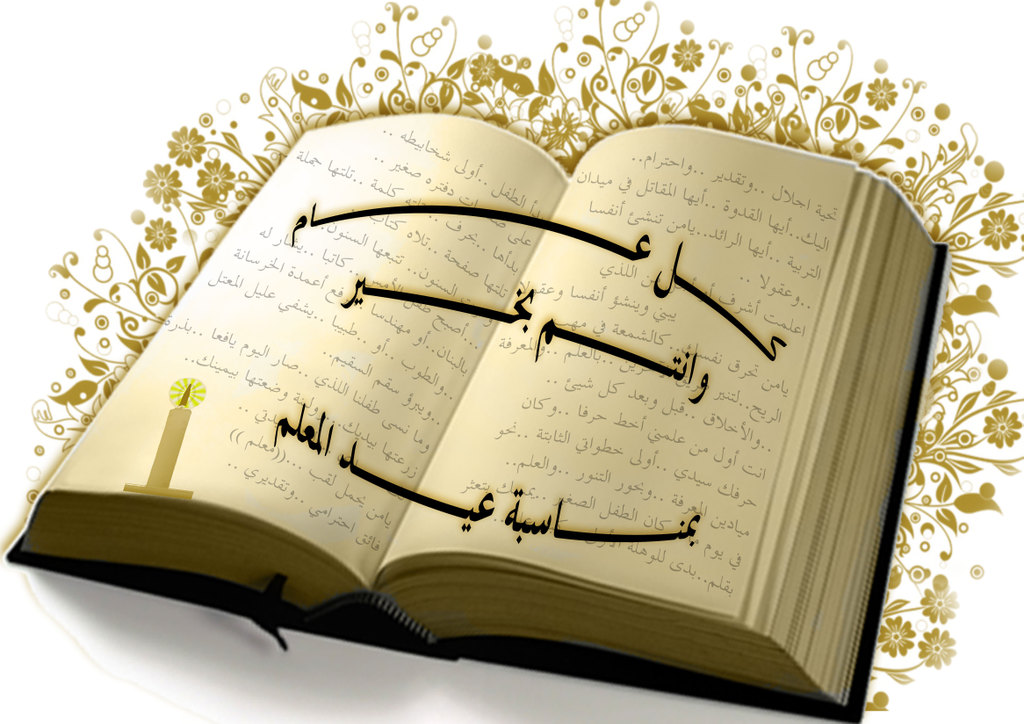 كل عام
وانتم بخير
بمناسبة عيد المعلم
تحية اجلال ..وتقدير ..واحترام..
اليك..أيها القدوة ..أيها المقاتل في ميدان
التربية ..أيها الرائد..يامن تنشئ أنفسا
..وعقولا ..
اعلمت أشرف
يبني وينشؤ أنفسا وعقولا
يامن تحرق نفسك.. كالشمعة في مهب
الريح..لتنير ..بالعلم ..والمعرفة
..والأخلاق ..قبل وبعد كل شيئ ..
انت أول من علمني أخط حرفا ..وكان
حرفك سيدي ..أولى خطواتي الثابتة ..نحو
ميادين المعرفة ..وبحور التنور ..والعلم..
في يوم كان الطفل الصغير يتعثر
بقلم..بدى للوهلة الأولى
الطفل ..أولى شخابيطه ..
على دفتره صغير ..
بدأها ..بحرف كلمة ..تلتها جملة
تلتها صفحة ..تلاه كتاب
السنون.. تتبعها السنون
..أصبح كاتبا له
بالبنان..أو مهندسا أعمدة الخرسانة
..والطوب ..أو طبيبا ..يشفي عليل المعتل
..ويبرؤ سقم السقيم.
وما نسى طفلنا اللذي ..صار اليوم يافعا ..بذرة
زرعتها بيديك وضعتها بيمينك..
يامن يحمل لقب ...((معلم ))
فائق احترامي ..وتقديري ..